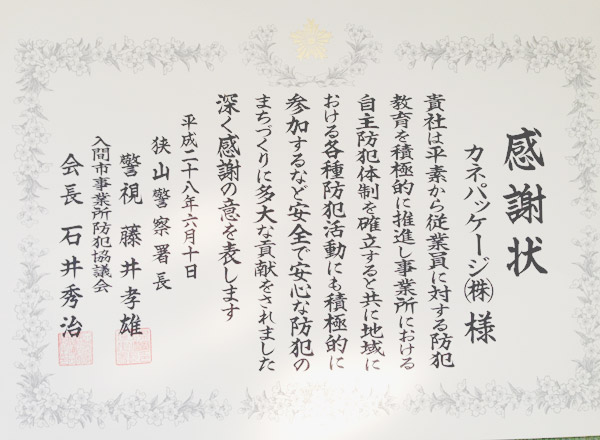 感謝状
カネパッケージ㈱ 様
貴社は平素から従業員に対する防犯
教育を積極的に推進し事業所における
自主防犯体制を確立すると共に地域に
おける各種防犯活動にも積極的に
参加するなど安全で安心な防犯の
まちづくりに多大な貢献をされました
深く感謝の意を表します
平成二十八年六月十日
狭山警察署長
警視 藤井孝雄
入間市事業所防犯協議会
会長 石井秀治